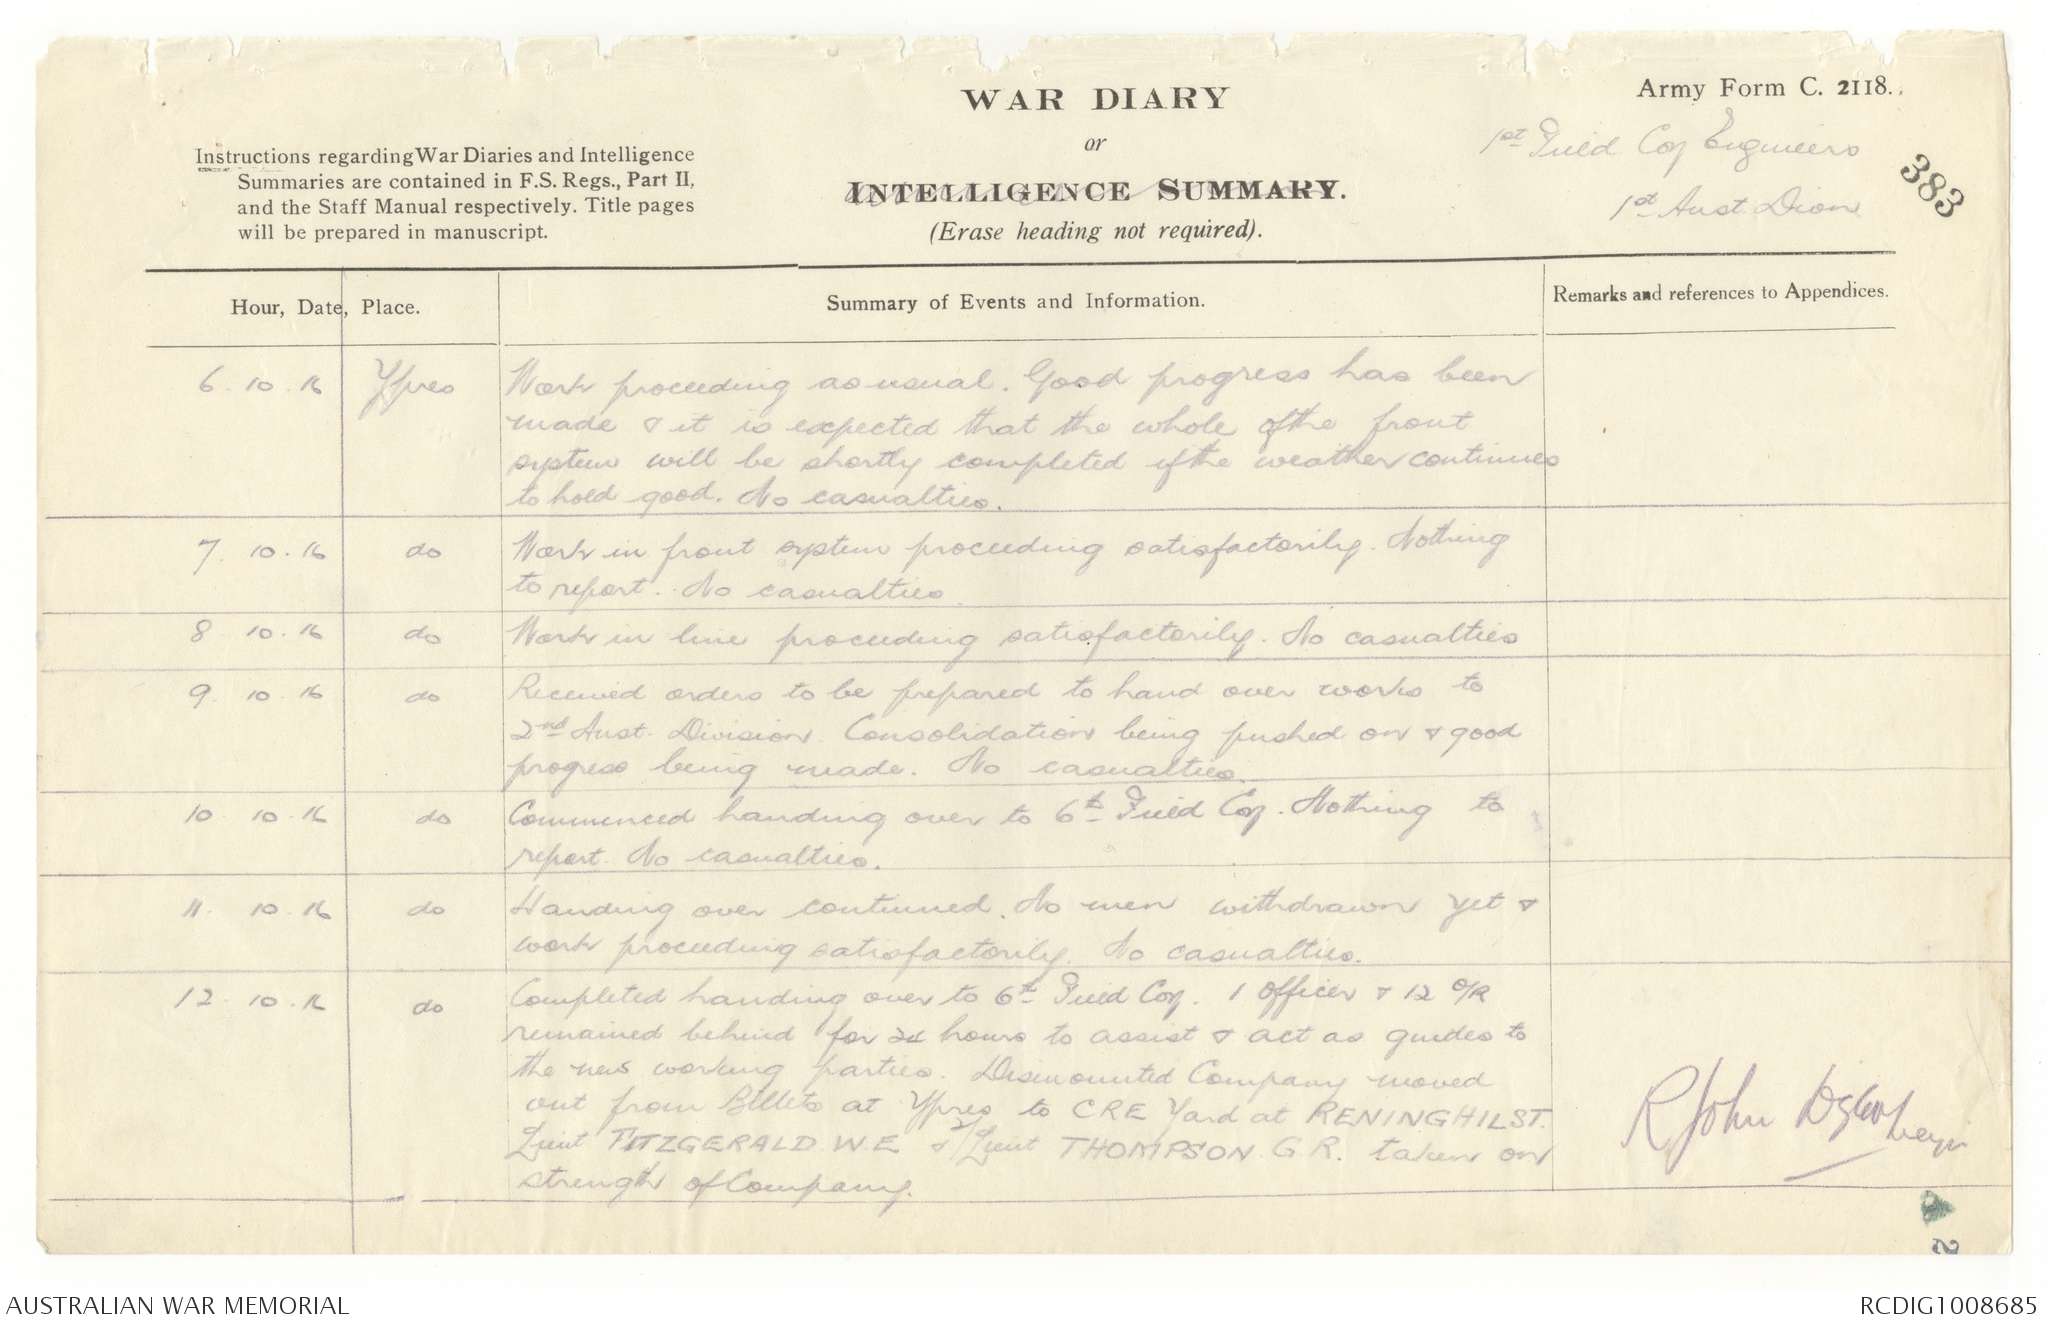 WAR DIARY
or
INTELLIGENCE SUMMARY.
(Erase heading not required).
Army Form C. 2118.
Instructions regarding War Diaries and Intelligence
Summaries are contained in F.S. Regs., Part II,
and the Staff Manual respectively. Title pages
will be prepared in manuscript.
1st Field Coy Engineers
1st Aust. Divn
383
Hour, Date, Place.
Summary of Events and Information.
Remarks and references to Appendices.
6. 10. 16 Ypres Work proceeding as usual. Good progress has been
made & it is expected that the whole of the front
system will be shortly completed if the weather continues
to hold good. No casualties.
7. 10. 16 do Work in front system proceeding satisfactorily. Nothing
to report. No casualties
8 10. 16 do Work in line proceeding satisfactorily. No casualties
9. 10. 16 do Received orders to be prepared to hand over works to
2nd Aust. Division. Consolidation being pushed on & good
progress being made. No casualties.
10 10. 16 do Commenced handing over to 6th Field Coy. Nothing to
report. No casualties.
11. 10. 16 do Handing over continued. No men withdrawn yet &
work proceeding satisfactorily. No casualties.
12 10. 16 do Completed handing over to 6th Field Coy. 1 Officer & 12 O/R
remained behind for 24 hours to assist & act as guides to
the new working parties. Dismounted Company moved
out from Billets at Ypres to CRE Yard at RENINGHILST.
Lieut FITZGERALD W.E & 2/Lieut THOMPSON G.R. taken on
strength of Company.
R John
2
AUSTRALIAN WAR MEMORIAL
RCDIG1008685